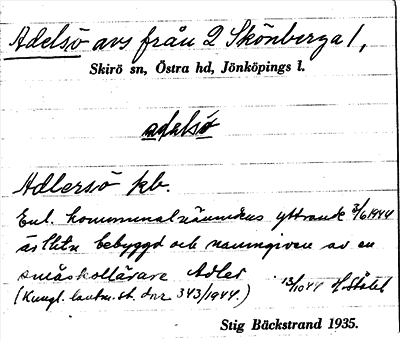 Adelsö avs från 2 Skönberga 1,
Skirö sn, Östra hd, Jönköpings l.
adelsö
Adlersö kb.
Enl. kommunalnämndens yttrande 3/6 1944
är lht bebyggd och namngiven av en
småskollärare Adler
(Kungl. lantm.st. dnr 343/1944.) 13/10 44 H Ståhl
Stig Bäckstrand 1935.